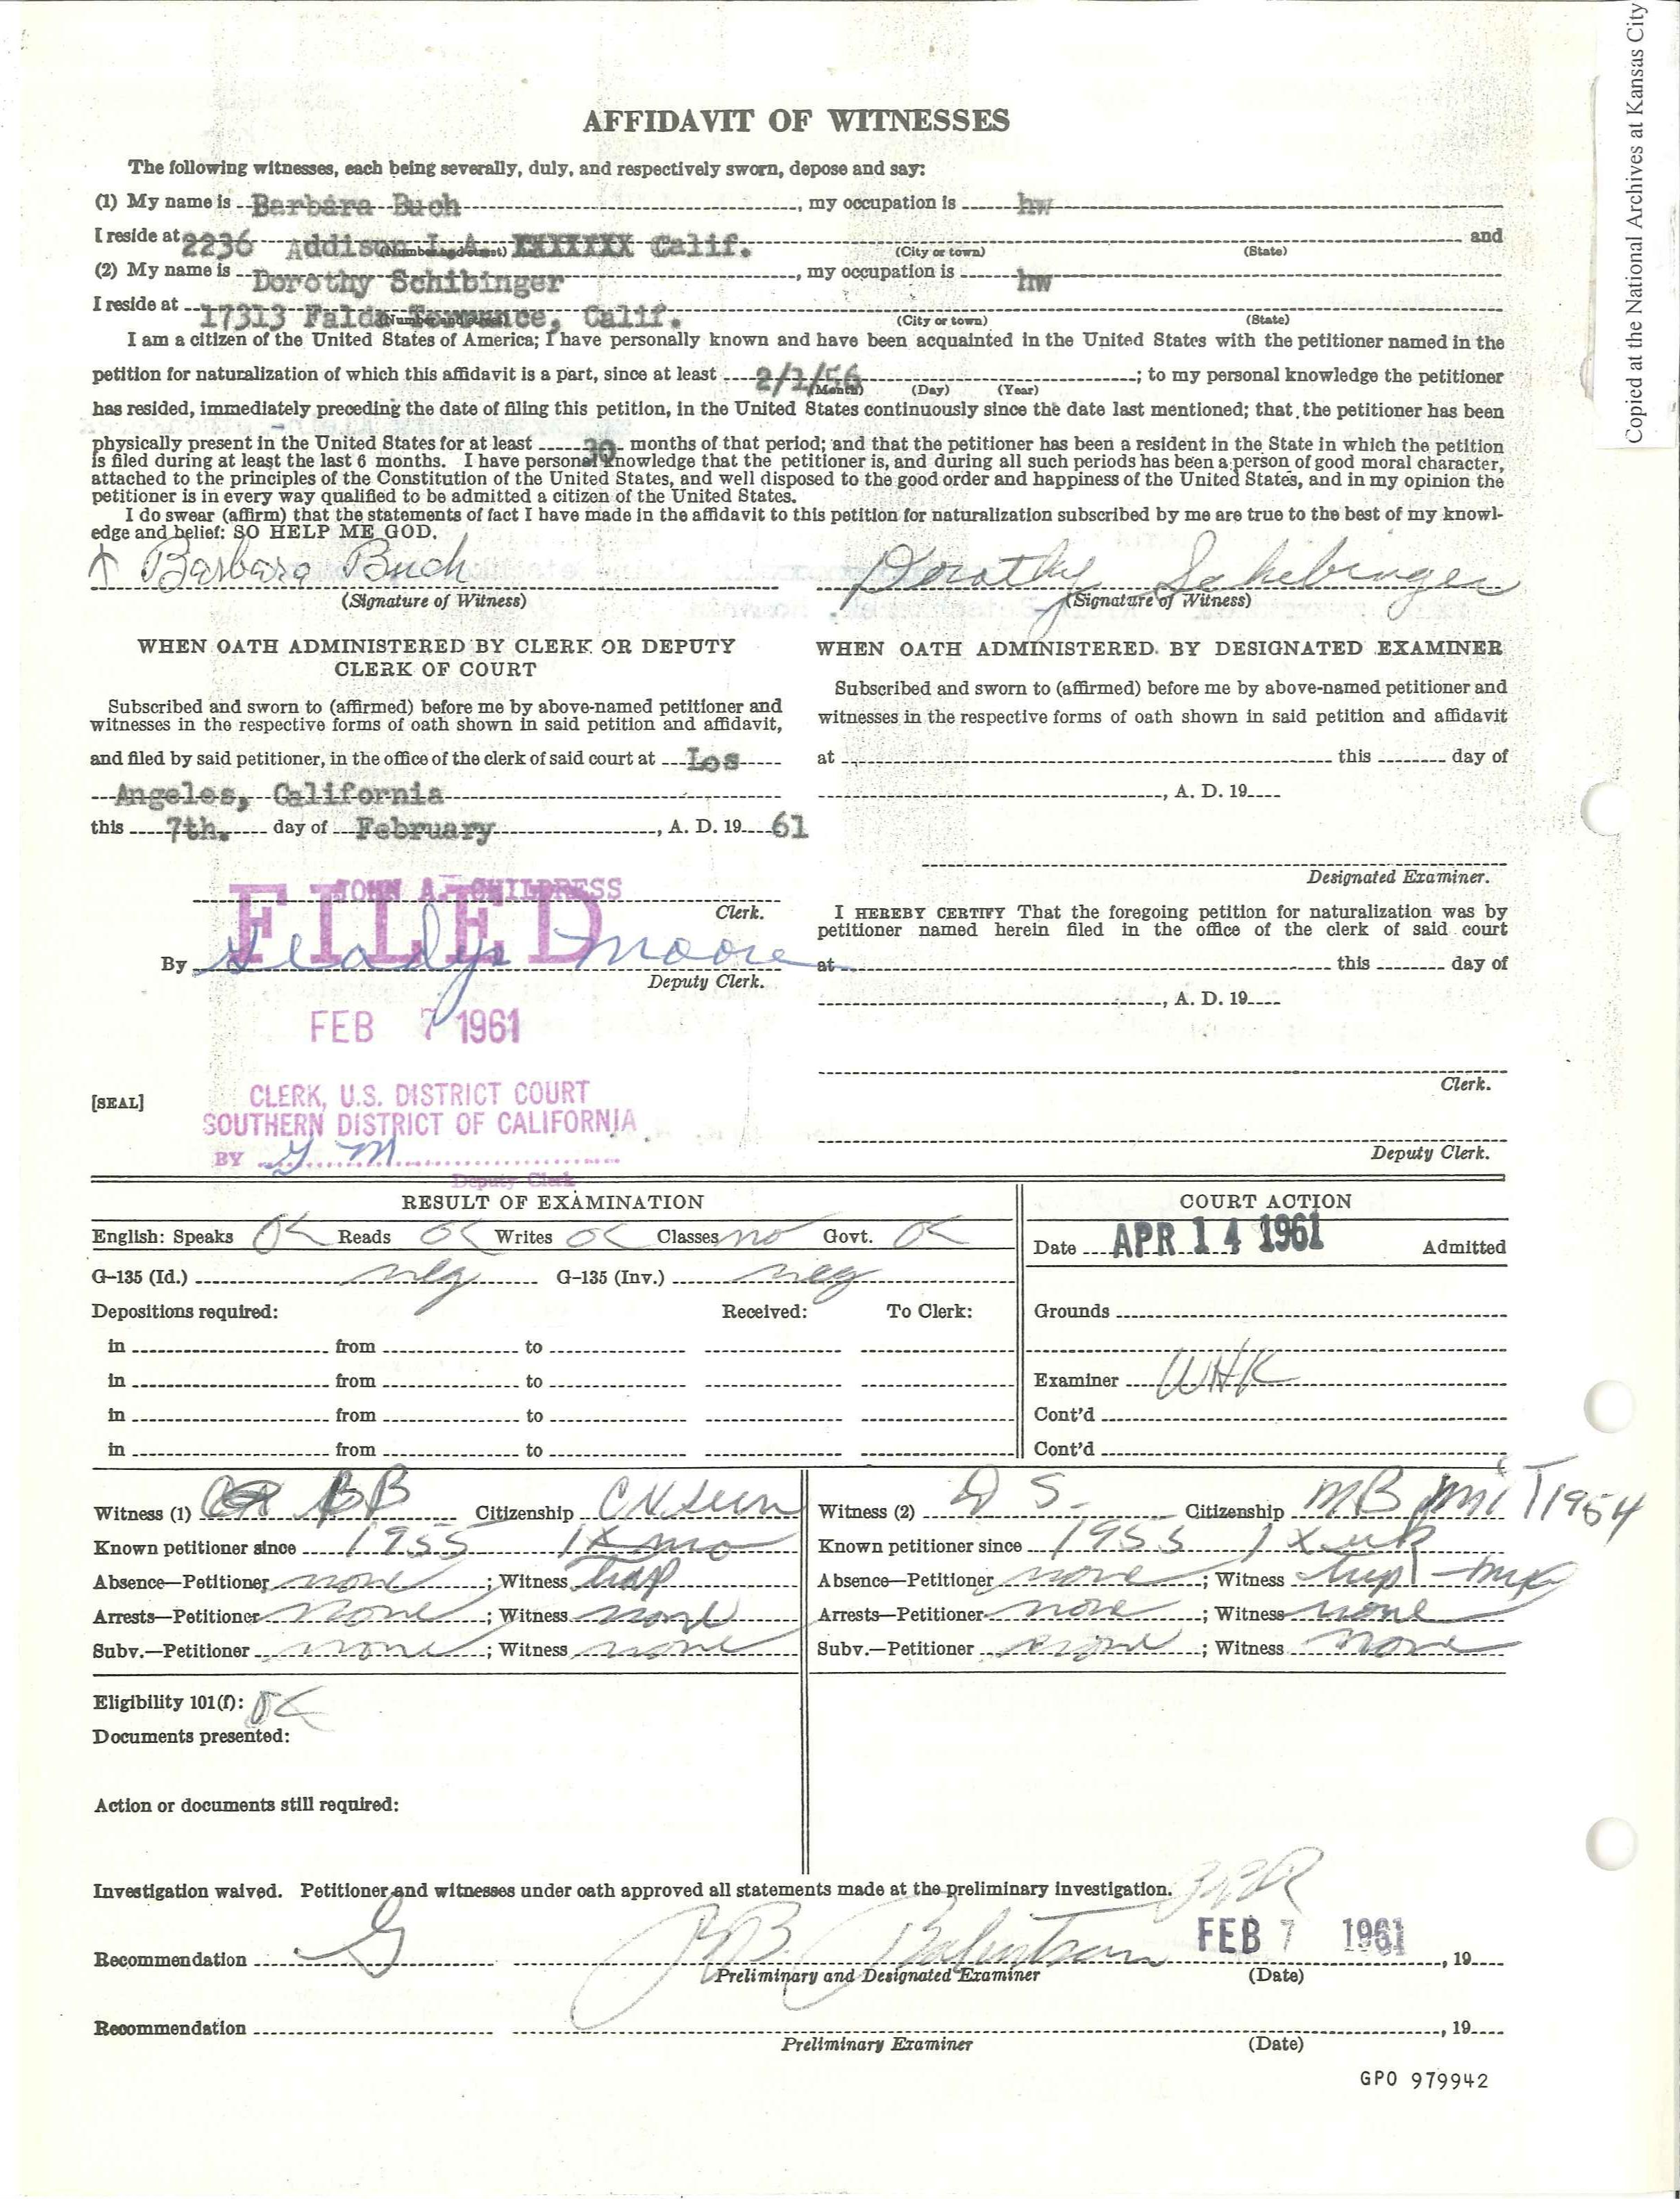 Copied at the National Archives at Kansas City
AFFIDAVIT OF WITNESSES
The following witnesses, each being severally, duly, and respectively sworn, depose and say:
(1) My name is Barbara Buch, my occupation is hw
I reside at 2236 Addison L.A. XXXXXXX Calif. and
(Number and street) (City or town) (State)
(2) My name is Dorothy Schibinger, my occupation is hw
I reside at 17313 Falda Torrance, Calif.
(Number and street) (City or town) (State)
I am a citizen of the United States of America; I have personally known and have been acquainted in the United States with the petitioner named in the
petition for naturalization of which this affidavit is a part, since at least 2/7/56; to my personal knowledge the petitioner
(Month) (Day) (Year)
has resided, immediately preceding the date of filing this petition, in the United States continuously since the date last mentioned; that the petitioner has been
physically present in the United States for at least 30 months of that period; and that the petitioner has been a resident in the State in which the petition
is filed during at least the last 6 months. I have personal knowledge that the petitioner is, and during all such periods has been a person of good moral character,
attached to the principles of the Constitution of the United States, and well disposed to the good order and happiness of the United States, and in my opinion the
petitioner is in every way qualified to be admitted a citizen of the United States.
I do swear (affirm) that the statements of fact I have made in the affidavit to this petition for naturalization subscribed by me are true to the best of my knowl-
edge and belief: SO HELP ME GOD.
Barbara Buch Dorothy Schibinger
(Signature of Witness) (Signature of Witness)
WHEN OATH ADMINISTERED BY CLERK OR DEPUTY
CLERK OF COURT
Subscribed and sworn to (affirmed) before me by above-named petitioner and
witnesses in the respective forms of oath shown in said petition and affidavit,
and filed by said petitioner, in the office of the clerk of said court at Los
Angeles, California
this 7th. day of February, A. D. 19 61
JOHN A. CHILDRESS
FILED
Clerk.
By Gladys Moore
Deputy Clerk.
FEB 7 1961
[SEAL]
CLERK, U.S. DISTRICT COURT
SOUTHERN DISTRICT OF CALIFORNIA
BY G M
Deputy Clerk
WHEN OATH ADMINISTERED BY DESIGNATED EXAMINER
Subscribed and sworn to (affirmed) before me by above-named petitioner and
witnesses in the respective forms of oath shown in said petition and affidavit
at this day of
, A. D. 19
Designated Examiner.
I HEREBY CERTIFY That the foregoing petition for naturalization was by
petitioner named herein filed in the office of the clerk of said court
at this day of
, A. D. 19
Clerk.
Deputy Clerk.
RESULT OF EXAMINATION
English: Speaks OK Reads OK Writes OK Classes no Govt. OK
G-135 (Id.) neg G-135 (Inv.) neg
Depositions required: Received: To Clerk:
in from to
in from to
in from to
in from to
COURT ACTION
Date APR 14 1961 Admitted
Grounds
Examiner WHK
Cont'd
Cont'd
Witness (1) BB Citizenship
Known petitioner since 1955 1X mo
Absence—Petitioner none; Witness trip
Arrests—Petitioner none; Witness none
Subv.—Petitioner none; Witness none
Witness (2) D S. Citizenship 1954
Known petitioner since 1955 1 X wk
Absence—Petitioner none; Witness trip
Arrests—Petitioner none; Witness none
Subv.—Petitioner none; Witness none
Eligibility 101(f): OK
Documents presented:
Action or documents still required:
Investigation waived. Petitioner and witnesses under oath approved all statements made at the preliminary investigation.
Recommendation G FEB 7 1961, 19
Preliminary and Designated Examiner (Date)
Recommendation , 19
Preliminary Examiner (Date)
GPO 979942